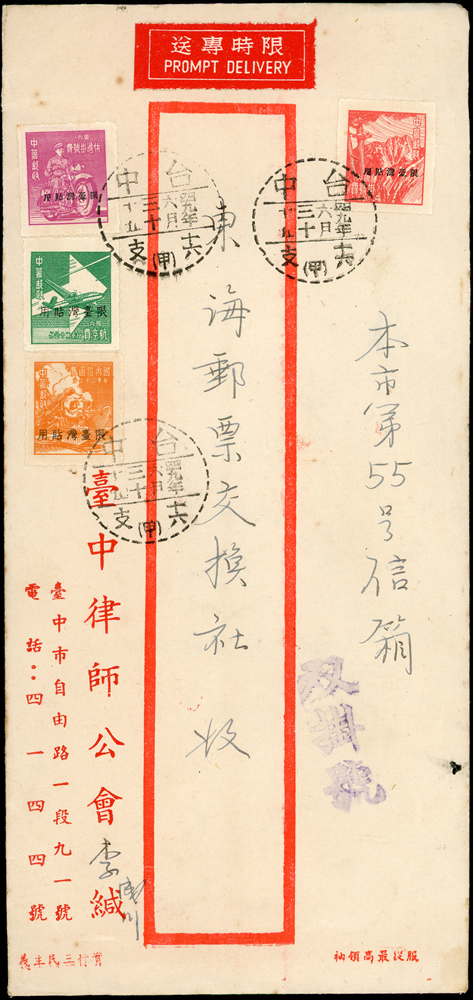 限時專送
PROMPT DELIVERY
國內
快遞掛號費
中華郵政
限臺灣貼用
中華郵政
限臺灣貼用
國內
航空費
中華郵政
限臺灣貼用
國內信函費
中華郵政
限臺灣貼用
台中
六月
(甲)
台中
六月
(甲)
台中
六月
(甲)
本市第55号信箱
雙掛號
東海郵票交換社 收
臺中律師公會李 緘
臺中市自由路一段九一號
電話：四一四四號
服從最高領袖
實行三民主義